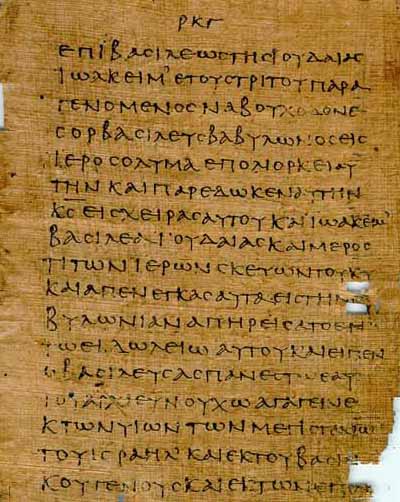 ΡΚΓ
ΕΠΙΒΑϹΙΛΕΩϹΤΗϹΙΟΥΔΑΙΑϹ
ΙΩΑΚΕΙΜ'ΕΤΟΥϹΤΡΙΤΟΥΠΑΡΑ
ΓΕΝΟΜΕΝΟϹΝΑΒΟΥΧΟΔΟΝΕ
ϹΟΡΒΑϹΙΛΕΥϹΒΑΒΥΛΩΝΟϹΕΙϹ
ΪΕΡΟϹΟΛΥΜΑΕΠΟΛΙΟΡΚΕΙΑΥ
ΤΗΝΚΑΙΠΑΡΕΔΩΚΕΝΑΥΤΗΝ
Κ̅Ϲ̅ΕΙϹΧΕΙΡΑϹΑΥΤΟΥΚΑΙΙΩΑΚΕΙΜ
ΒΑϹΙΛΕΑΙΟΥΔΑΙΑϹΚΑΙΜΕΡΟϹ
ΤΙΤΩΝΙΕΡΩΝϹΚΕΥΩΝΤΟΥΚ̅Υ̅
ΚΑΙΑΠΕΝΕΓΚΑϹΑΥΤΑΕΙϹΤΗΝ
ΒΥΛΩΝΙΑΝΑΠΗΡΕΙϹΑΤΟΕΝ
ΤΩΕΙΔΩΛΕΙΩΑΥΤΟΥΚΑΙΕΙΠΕΝ
ΒΑϹΙΛΕΥϹΑϹΠΑΝΕϹ
ΕΥΝΟΥΧΩΑΓΑΓΕΙΝΕ
ΚΤΩΝΥΙΩΝΤΩΝΜΕΓΙϹΤΑΝΩΝ
ΤΟΥΙϹΡΑΗΛ'ΚΑΙΕΚΤΟΥΒΑϹΙΛΙ
ΚΟΥΓΕΝΟΥϹΚΑΙΕΚΤΩΝ